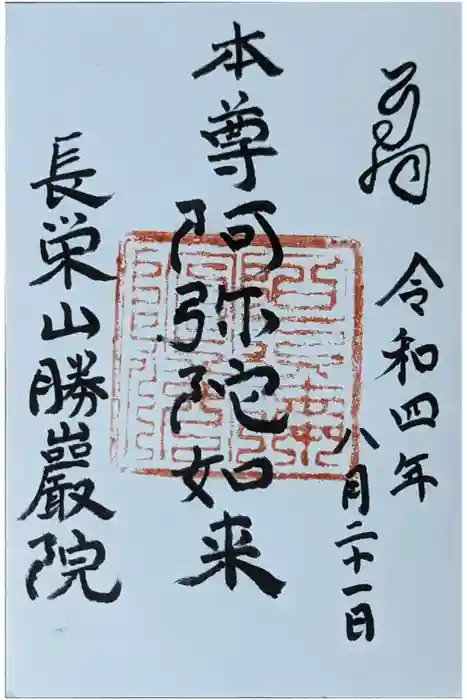 令和四年
八月二十一日
本尊阿弥陀如来
長栄山勝巖院